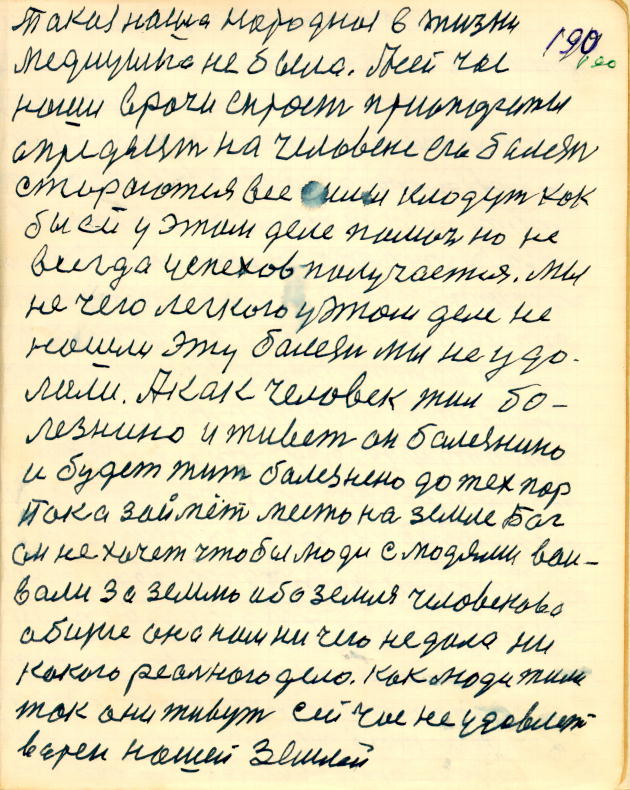 такая наша народная в жизни
190
медицына не была. Сей час
наши врачи спроет приоподгеты
определят на человеке его балезн
стораются все силы кладут как
бы ей у этом деле помоч но не
всегда успехов получается. Мы
не чего легкого у этом деле не
нашли эту балезн мы не удо-
лили. А как человек жил бо-
лезнино и живет он балезнино
и будет жит балезнено до тех пор
пока займёт место на земле Бог
он не хочет чтобы люди с людями вои-
вали за землю ибо земля человекова
общие она нам ни чего не дала ни
какого реалного дело. Как люди жили
так они живут сей час не удовлет-
варен нашей Землей